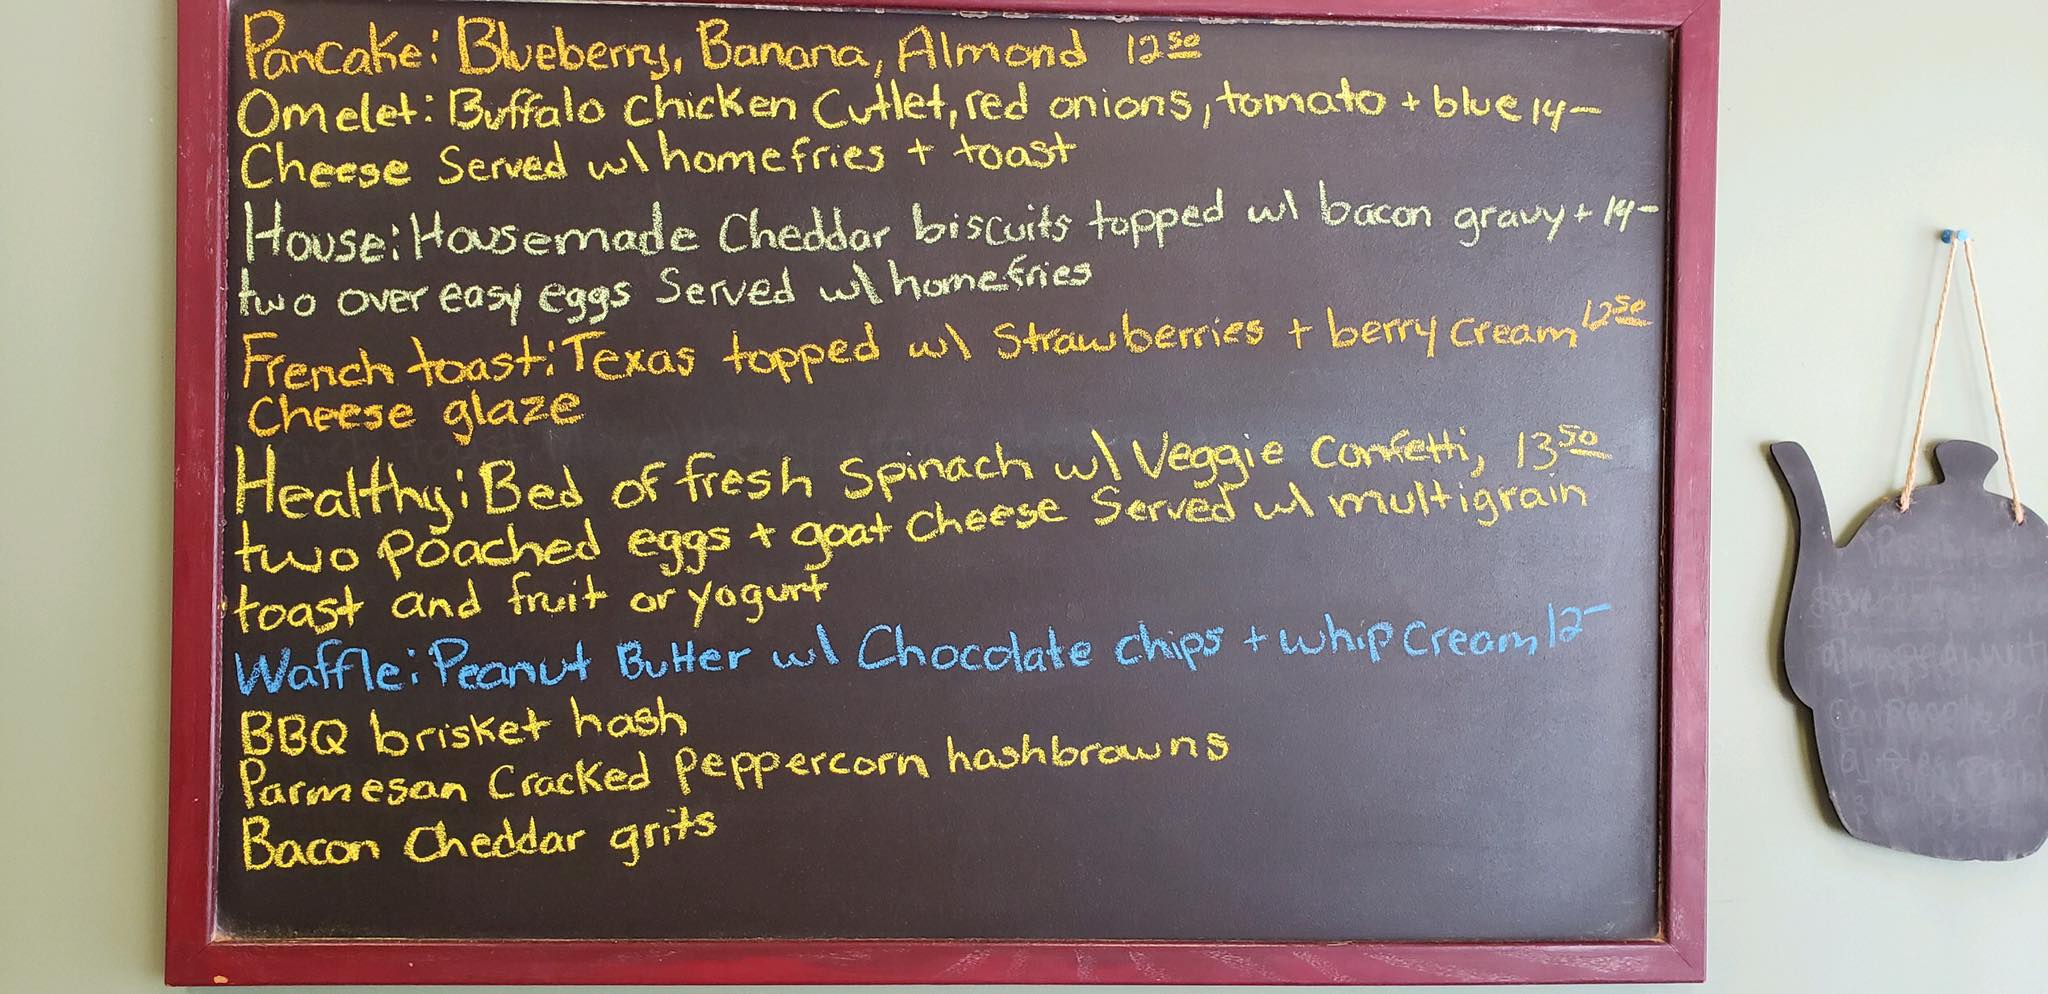 Pancake: Blueberry, Banana, Almond 12 50
Omelet: Buffalo chicken Cutlet, red onions, tomato + blue 14-
Cheese Served w/ homefries + toast
House: Housemade Cheddar biscuits topped w/ bacon gravy + 14-
two over easy eggs Served w/ homefries
French toast: Texas topped w/ Strawberries + berry cream 12 50
Cheese glaze
Healthy: Bed of fresh Spinach w/ Veggie Confetti, 13 50
two poached eggs + goat cheese Served w/ multigrain
toast and fruit or yogurt
Waffle: Peanut Butter w/ Chocolate chips + whip cream 12-
BBQ brisket hash
Parmesan Cracked peppercorn hashbrowns
Bacon Cheddar grits